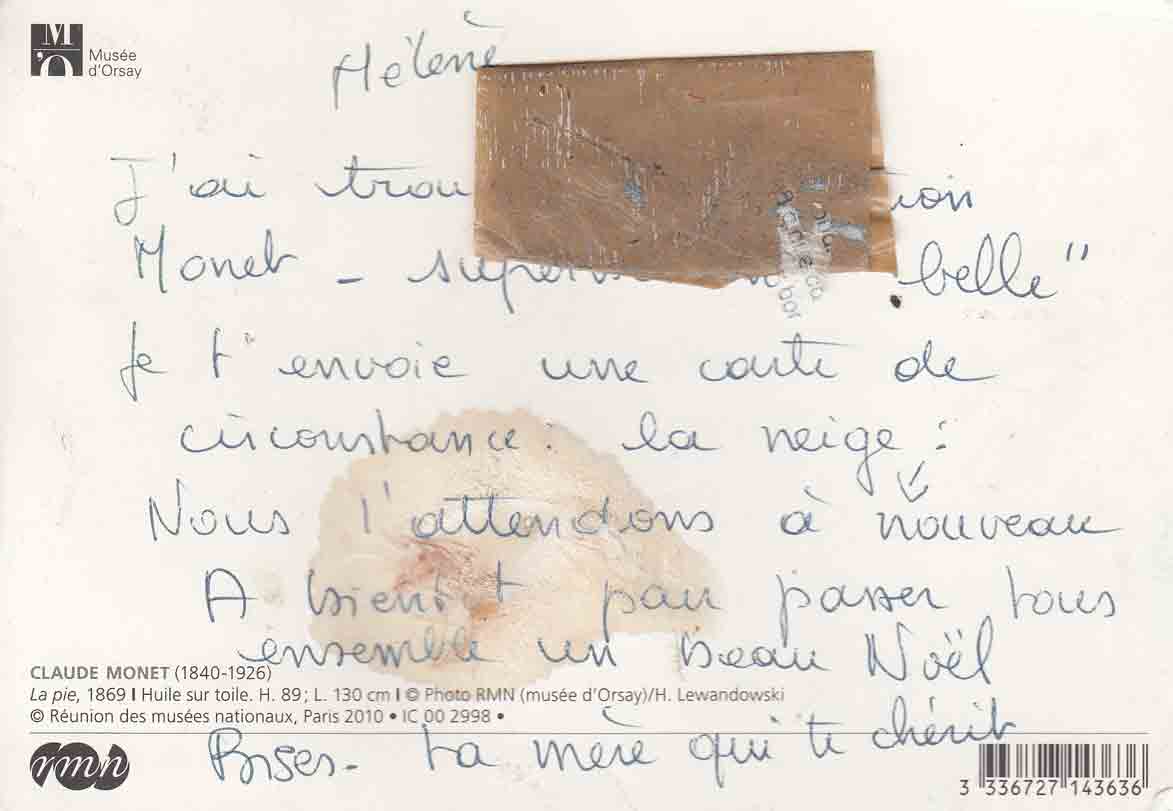 Musée
d'Orsay
Hélène
J'ai
Monet -
belle"
Je t'envoie une carte de
circonstance : la neige :
Nous l'attendons à nouveau
A bientôt pour passer tous
ensemble un beau Noël
CLAUDE MONET (1840-1926)
La pie, 1869 I Huile sur toile. H. 89 ; L. 130 cm I © Photo RMN (musée d'Orsay)/H. Lewandowski
© Réunion des musées nationaux, Paris 2010 • IC 00 2998 •
Bises - ta mère qui te chérit
rmn
3 336727 143636